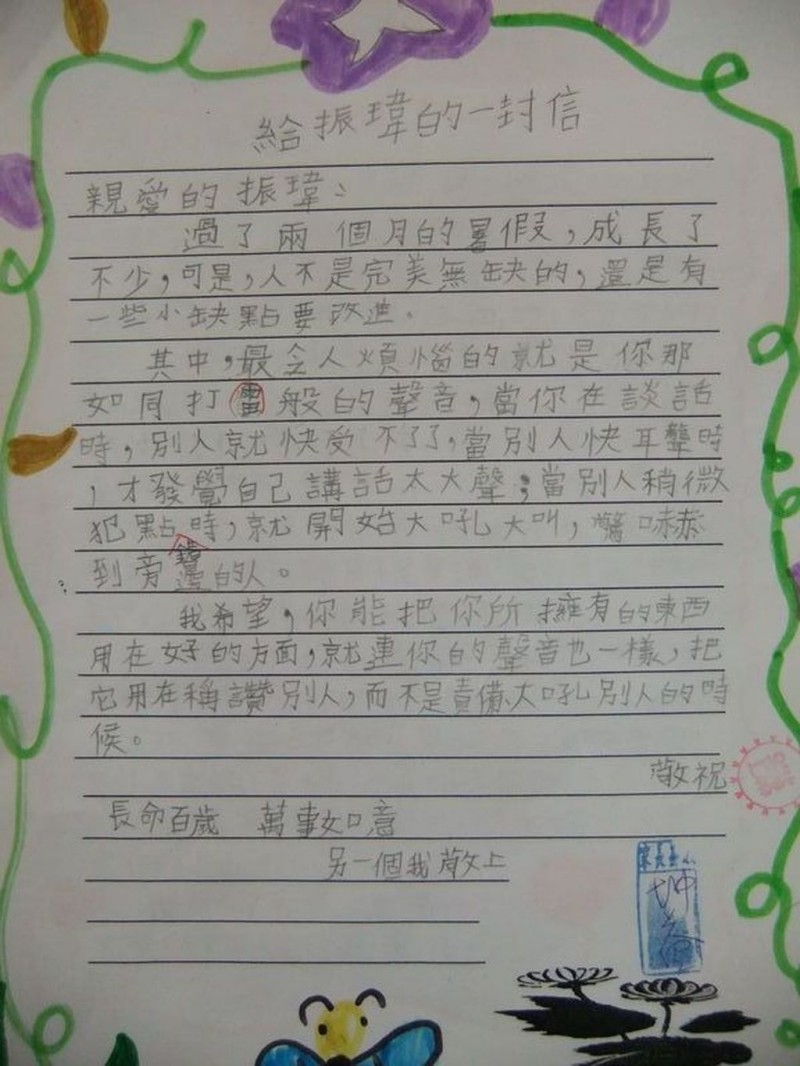 給振瑋的一封信
親愛的振瑋：
過了兩個月的暑假，成長了
不少，可是，人不是完美無缺的，還是有
一些小缺點要改進。
其中，最令人煩惱的就是你那
如同打雷般的聲音，當你在談話
時，別人就快受不了了，當別人快耳聾時
，才發覺自己講話太大聲；當別人稍微
犯點時，就開始大吼大叫，驚嚇
錯
到旁邊的人。
我希望，你能把你所擁有的東西
用在好的方面，就連你的聲音也一樣，把
它用在稱讚別人，而不是責備大吼別人的時
候。
敬祝
長命百歲 萬事如意
另一個我敬上